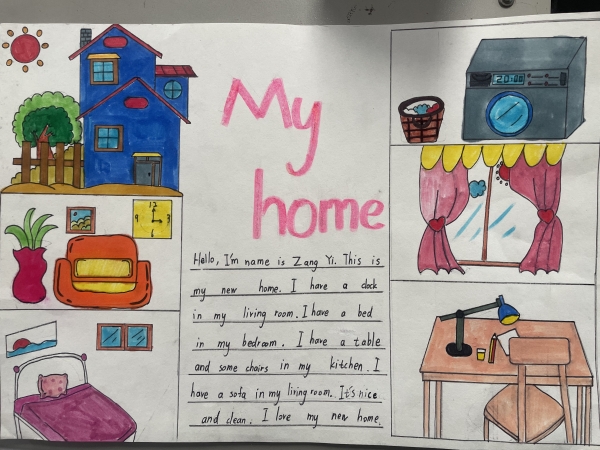 My
home
20:00
12
9 3
6
Hello, I'm name is Zang Yi. This is
my new home. I have a clock
in my living room. I have a bed
in my bedroom. I have a table
and some chairs in my kitchen. I
have a sofa in my living room. It's nice
and clean. I love my new home.